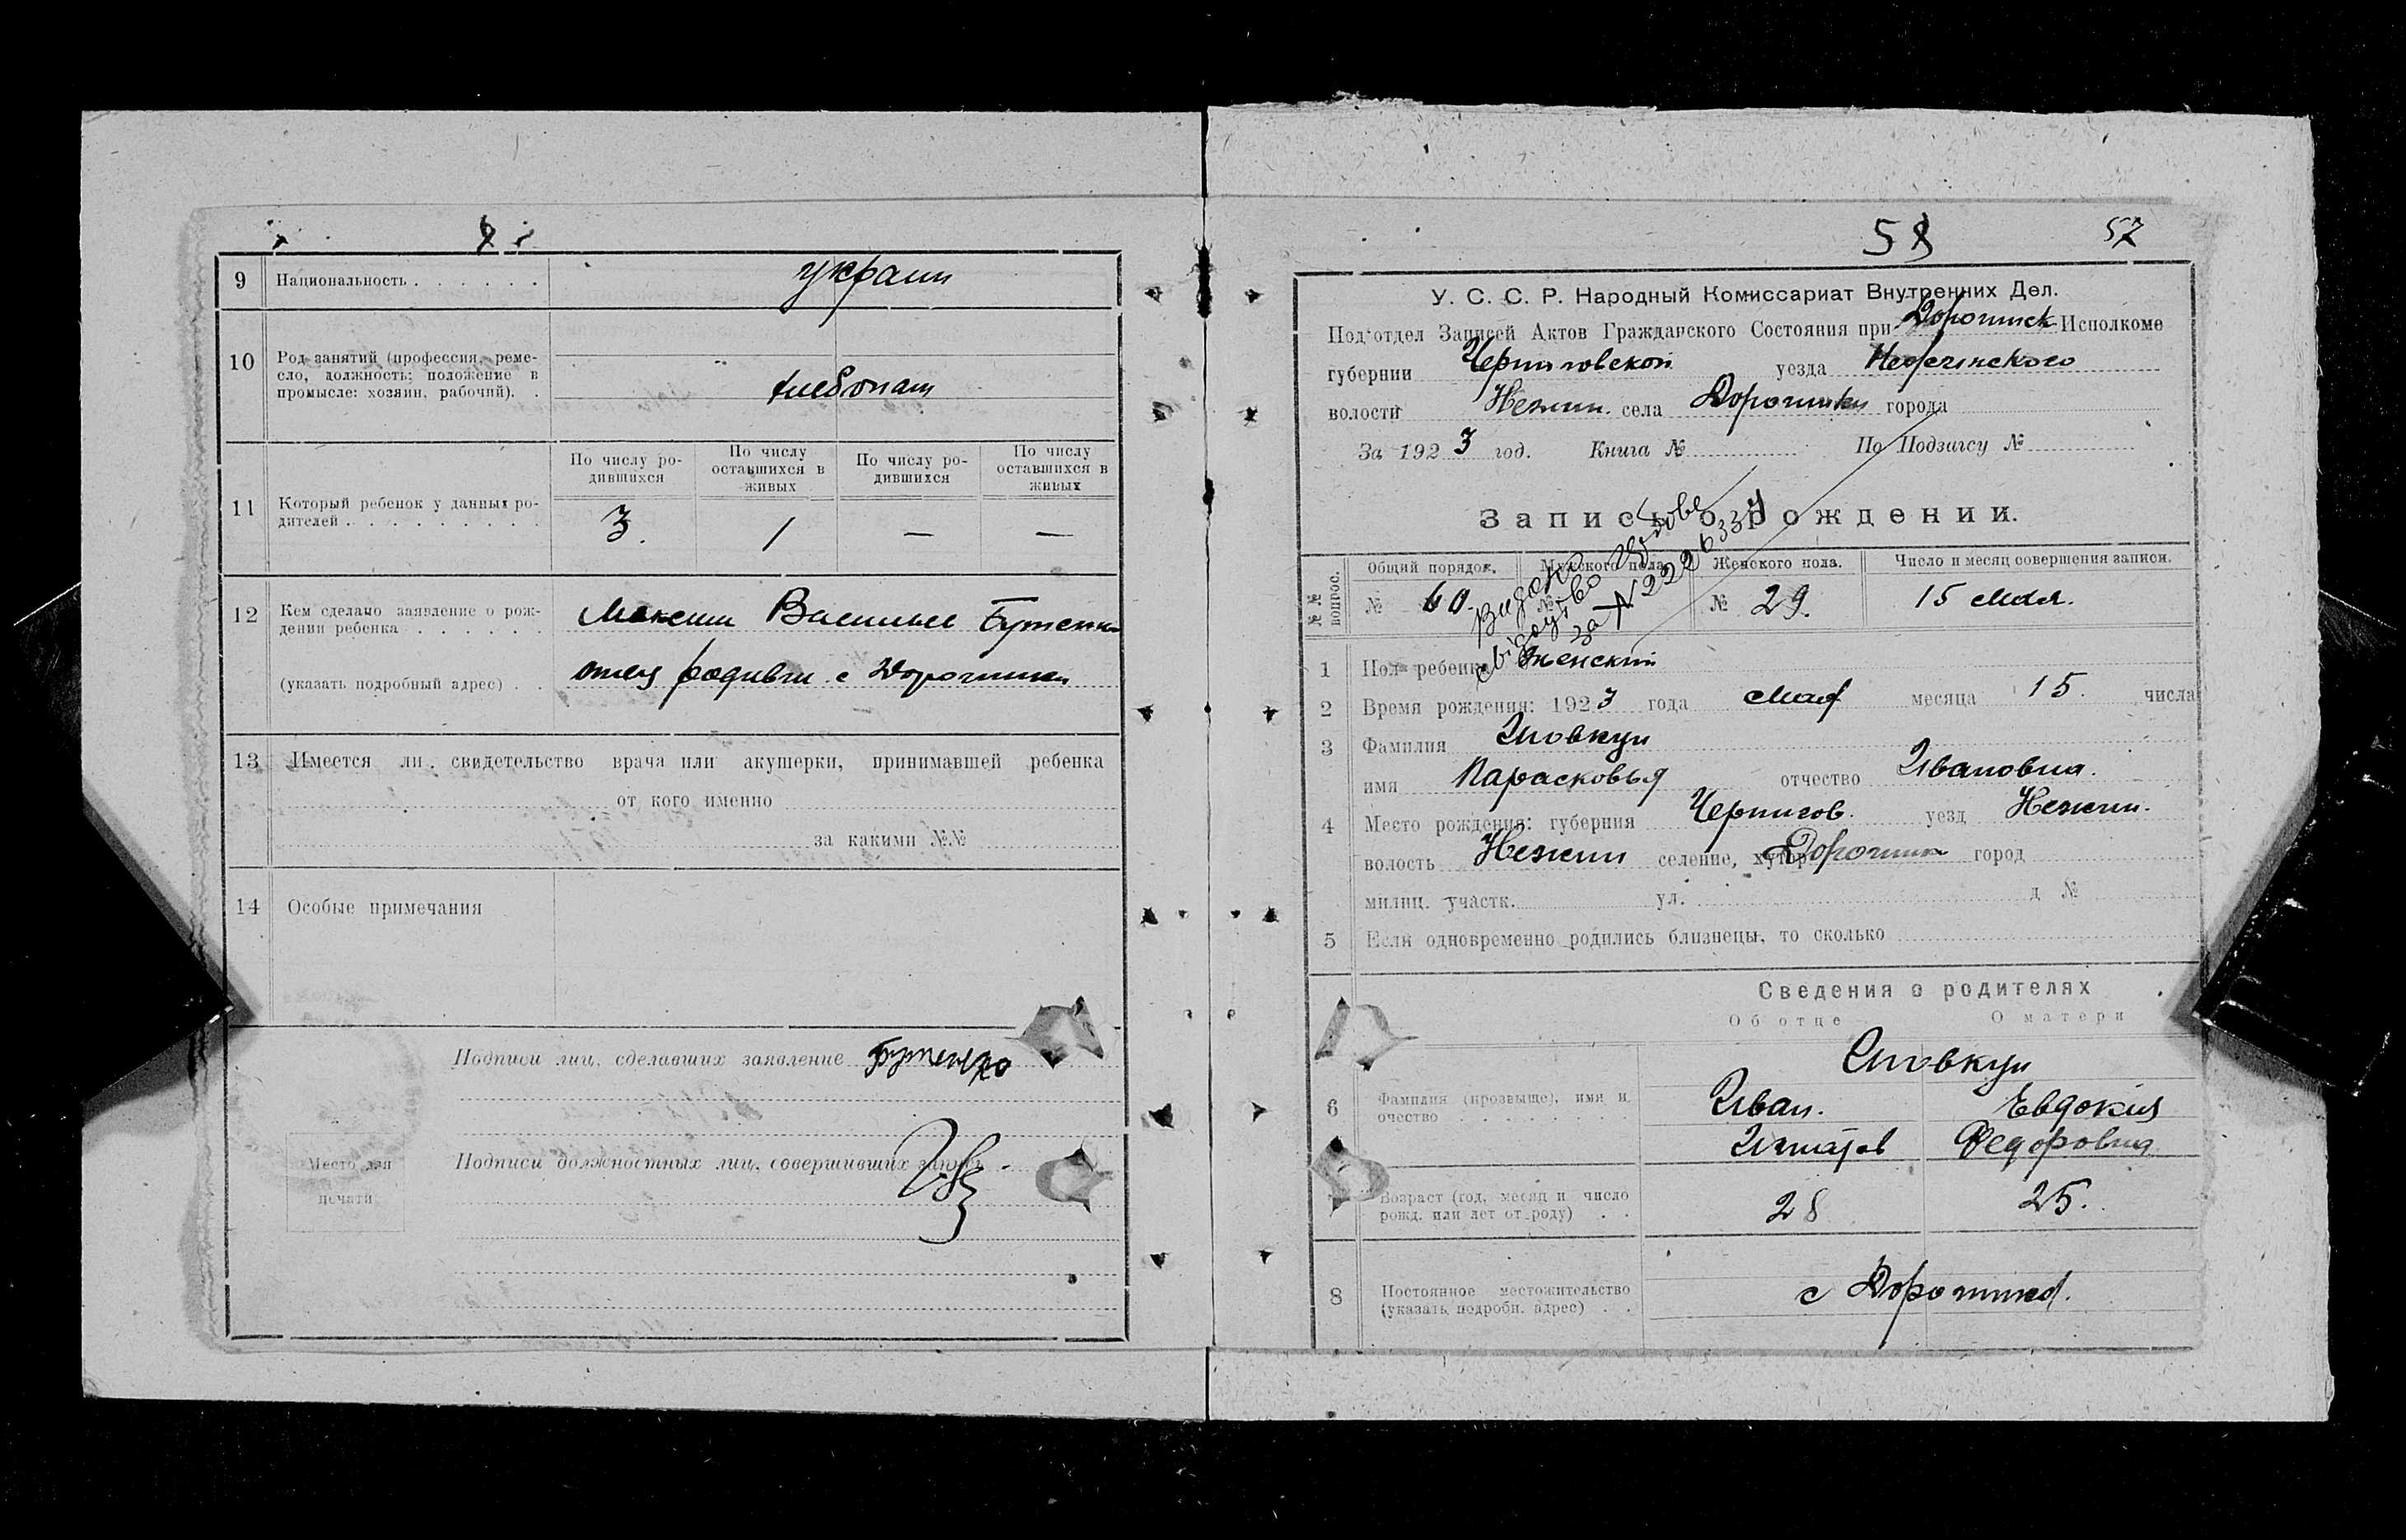 9 Национальность . . . . . . украин
10 Род занятий (профессия, реме-
сло, должность: положение в
промысле: хозяин, рабочий). .
хлебопаш
11 Который ребенок у данных ро-
дителей . . . . . . . . .
По числу ро-
дившихся
По числу
оставшихся в
живых
По числу ро-
дившихся
По числу
оставшихся в
живых
3. 1 — —
12 Кем сделано заявление о рож-
дении ребенка . . . . . .
Максим Василиев Бутенко
(указать подробный адрес) . .
отец с Дорогинки
13 Имеется ли свидетельство врача или акушерки, принимавшей ребенка
от кого именно
за какими №№
14 Особые примечания
Подписи лиц, сделавших заявление Бутенко
Подписи должностных лиц, совершивших запись
Место для
печати
58 57
У. С. С. Р. Народный Комиссариат Внутренних Дел.
Под‘отдел Записей Актов Гражданского Состояния при Дорогинск Исполкоме
губернии Черниговской уезда Нежинского
волости Нежин. села Дорогинки города
За 1923 год. Книга № По Подзагсу №
Запись о рождении.
Видоно
свідоцтво
за № 2226334
№№ вопрос.
Общий порядок. Мужского пола. Женского пола. Число и месяц совершения записи.
№ 60. № № 29. 15 мая.
1 Пол ребенка Женский
2 Время рождения: 1923 года мая месяца 15. числа
3 Фамилия Шовкун
имя Парасковья отчество Ивановна.
4 Место рождения: губерния Чернигов. уезд Нежин.
волость Нежин селение, хутор Дорогинк город
милиц. участк. ул. д №
5 Если одновременно родились близнецы, то сколько
Сведения о родителях
Об отце О матери
Шовкун
6 Фамилия (прозвище), имя и
очество . . . . . . .
Иван. Евдокия
Игнатов Федоровна
Возраст (год, месяц и число
рожд. или лет от роду) . .
28 25.
8 Постоянное местожительство
(указать подробн. адрес) . .
с Дорогинка.